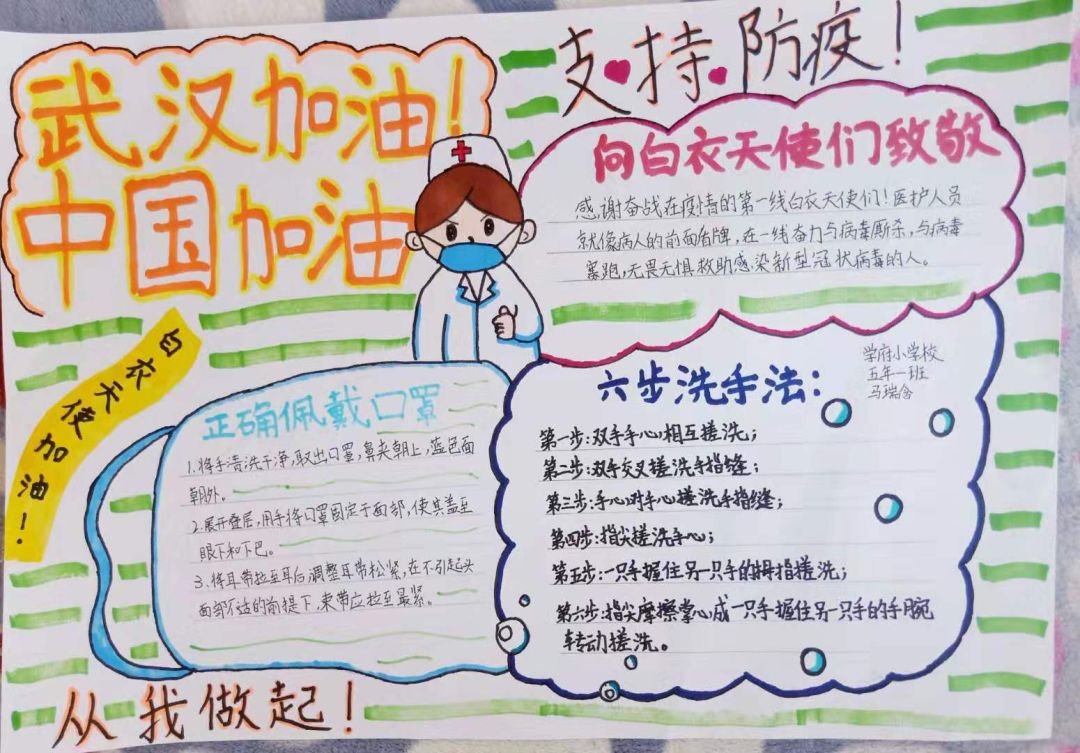 武汉加油!
中国加油
支持防疫!
向白衣天使们致敬
感谢奋战在疫情的第一线白衣天使们!医护人员
就像病人的前面盾牌,在一线奋力与病毒厮杀,与病毒
赛跑,无畏无惧救助感染新型冠状病毒的人。
白衣天使加油!
正确佩戴口罩
1.将手清洗干净,取出口罩,鼻夹朝上,蓝色面
朝外。
2.展开叠层,用手将口罩固定于面部,使其盖至
眼下和下巴。
3.将耳带拉至耳后,调整耳带松紧,在不引起头
面部不适的前提下,束带应拉至最紧。
学府小学校
五年一班
马瑞含
六步洗手法:
第一步:双手手心相互搓洗;
第二步:双手交叉搓洗手指缝;
第三步:手心对手心搓洗手指缝;
第四步:指尖搓洗手心;
第五步:一只手握住另一只手的拇指搓洗;
第六步:指尖摩擦掌心或一只手握住另一只手的手腕
转动搓洗。
从我做起!